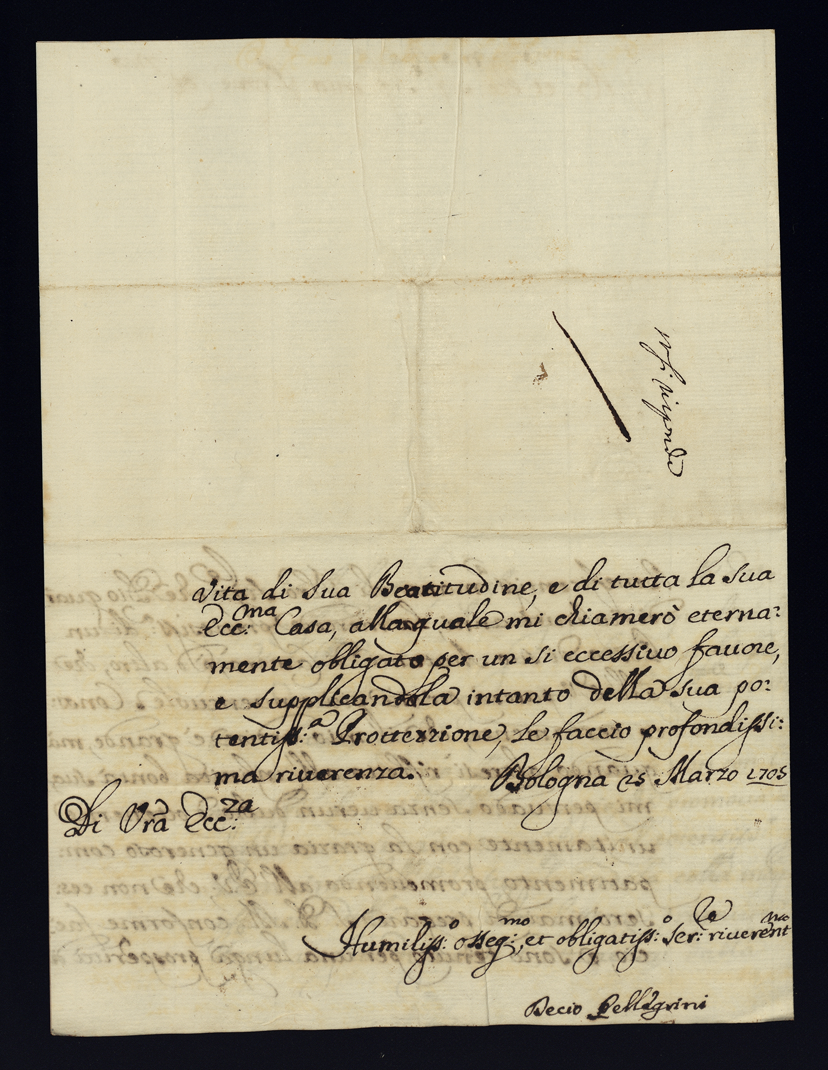 si risponde
Vita di Sua Beatitudine, e di tutta la sua
Ecc:ma Casa, alla quale mi chiamerò eterna:
mente obligato per un si eccessivo favore,
e supplicandola intanto della sua po:
tentiss:a Prottezzione, le faccio profondissi:
ma riverenza. Bologna 25 Marzo 1705
Di Vra Ecc:za
Humiliss:o osseq:mo, et obligatiss:o ser:re
Decio Pellegrini